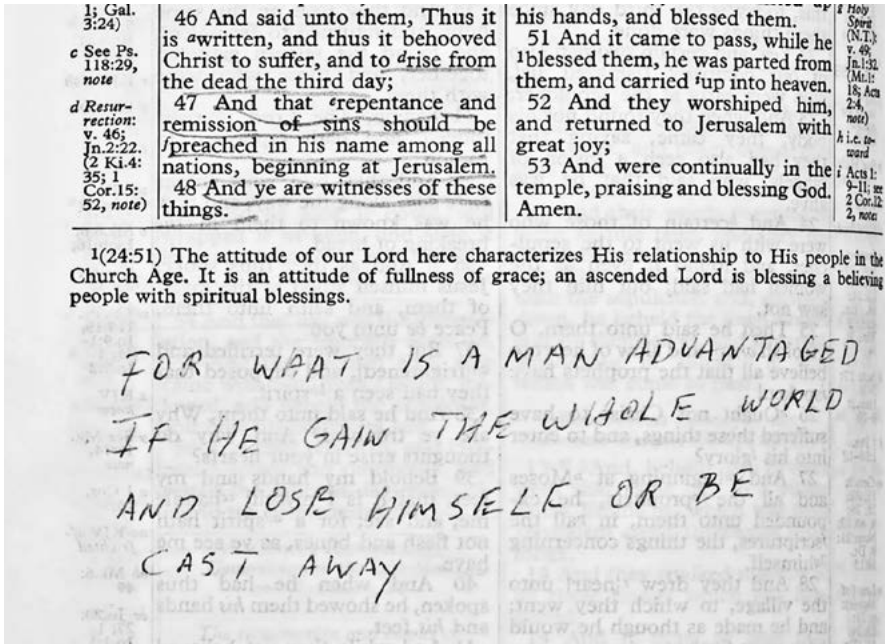 1; Gal.
3:24)
c See Ps.
118:29,
note
d Resur-
rection:
v. 46;
Jn.2:22.
(2 Ki.4:
35; 1
Cor.15:
52, note)
46 And said unto them, Thus it
is ᵃwritten, and thus it behooved
Christ to suffer, and to ᵈrise from
the dead the third day;
47 And that ᵉrepentance and
remission of sins should be
ᶠpreached in his name among all
nations, beginning at Jerusalem.
48 And ye are witnesses of these
things.
his hands, and blessed them.
51 And it came to pass, while he
¹blessed them, he was parted from
them, and carried ⁱup into heaven.
52 And they worshiped him,
and returned to Jerusalem with
great joy;
53 And were continually in the
temple, praising and blessing God.
Amen.
g Holy
Spirit
(N.T.):
v. 49;
Jn.1:32.
(Mt.1:
18; Acts
2:4,
note)
h i.e. to-
ward
i Acts 1:
9-11; see
2 Cor.12:
2, note
¹(24:51) The attitude of our Lord here characterizes His relationship to His people in the
Church Age. It is an attitude of fullness of grace; an ascended Lord is blessing a believing
people with spiritual blessings.
FOR WHAT IS A MAN ADVANTAGED
IF HE GAIN THE WHOLE WORLD
AND LOSE HIMSELF OR BE
CAST AWAY